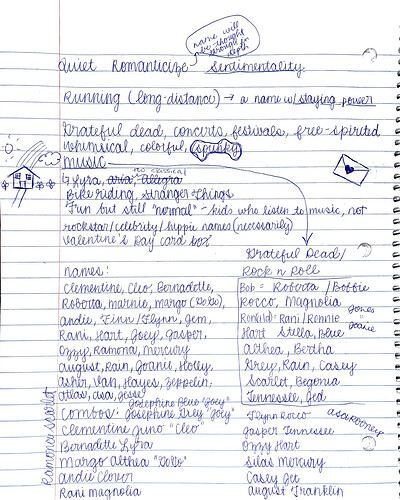 name will
be thought
through in
depth
Quiet Romanticize Sentimentality
Running (long-distance) → a name w/ staying power
Grateful dead, concerts, festivals, free-spirited
whimsical, colorful, spunky
music
no classical
Lyra, aria, allegra
Bike Riding, Stranger Things
Fun but still "normal" - kids who listen to music, not
rockstar/celebrity/hippie names (necessarily)
Valentine's Day card box
Grateful Dead/
Rock n Roll
names:
Clementine, Cleo, Bernadette,
Roberta, marnie, margo
andie, Finn/Flynn, Jem,
Rani, Hart, Joey, Jasper,
Ozzy, Ramona, mercury
august, Rain, Joanie, Holly,
Asher, Van, Hayes, Zeppelin,
atlas, asa, Jesse
Josephine Blue "Joey"
Combos: Josephine Grey "Joey"
Clementine Juno "Cleo"
Bernadette Lyra
Margo Althea
andie Clover
Rani magnolia
Ramona Scarlet
Bob = Roberta/Bobbie
Rocco, Magnolia
Jones
Ronald: Rani/Ronnie
Joanie
Hart Stella, Blue
Althea, Bertha
Grey, Rain, Casey
Scarlet, Begonia
Tennessee, Jed
Flynn Rocco
Jasper Tennessee
Ozzy Hart
Silas Mercury
Casey Jet
August Franklin